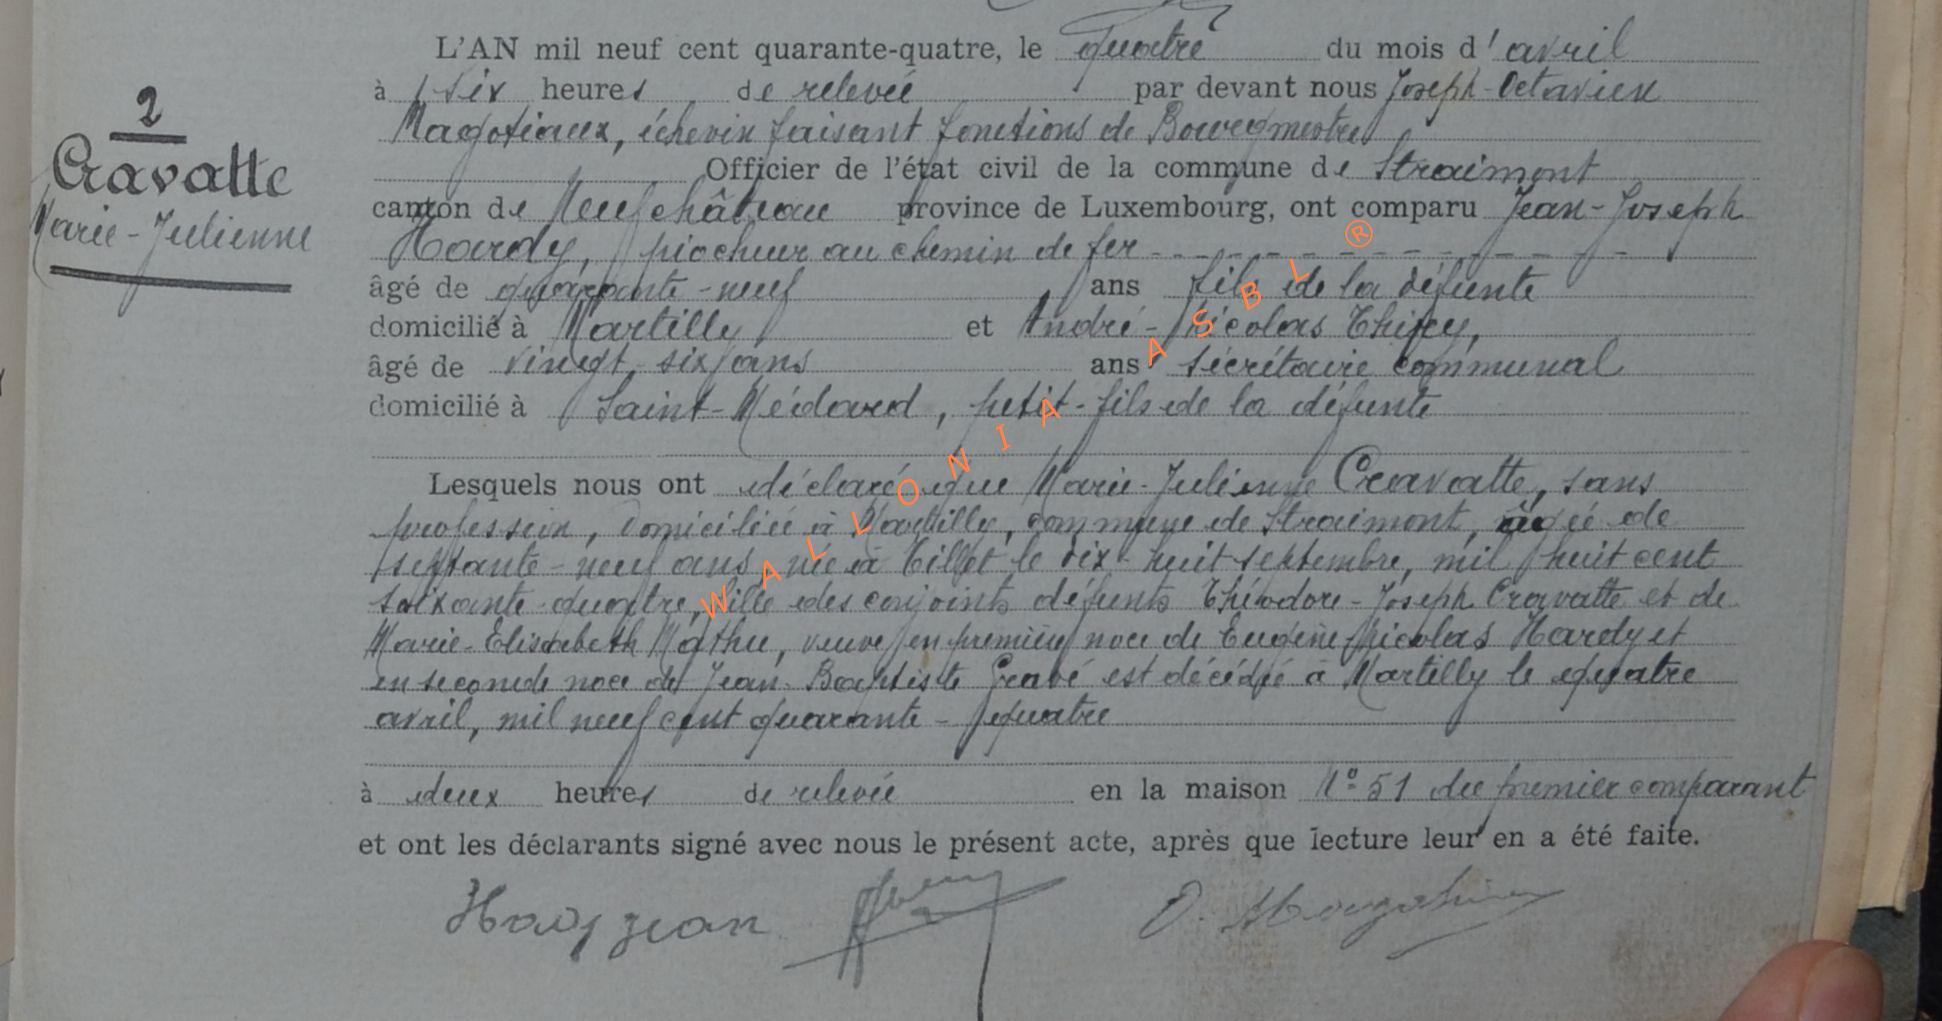 L'AN mil neuf cent quarante-quatre, le quatre du mois d'avril
à six heures de relevée par devant nous Joseph-Octavien
2
Magotiaux, échevin faisant fonctions de Bourgmestre
Cravatte
Officier de l'état civil de la commune de Straimont
Marie-Julienne
canton de Neufchâteau province de Luxembourg, ont comparu Jean-Joseph
Hardy, piocheur au chemin de fer
âgé de quarante-neuf ans fils de la défunte
domicilié à Martilly et André-Nicolas Thiry,
âgé de vingt-six ans ans sécrétaire communal
domicilié à Saint-Médard, petit-fils de la défunte
Lesquels nous ont déclaré que Marie-Julienne Cravatte, sans
profession, domiciliée à Martilly, commune de Straimont, âgée de
septante-neuf ans, née à Tillet le dix-huit septembre, mil huit cent
soixante-quatre, fille des conjoints défunts Théodore-Joseph Cravatte et de
Marie-Elisabeth Mathu, veuve en première noce de Eugène-Nicolas Hardy et
en seconde noce de Jean-Baptiste Gravé est décédée à Martilly le quatre
avril, mil neuf cent quarante-quatre
à deux heures de relevée en la maison N° 51 du premier comparant
et ont les déclarants signé avec nous le présent acte, après que lecture leur en a été faite.
Hardy Jean O. Magotiaux
WALLONIA ASBL ®